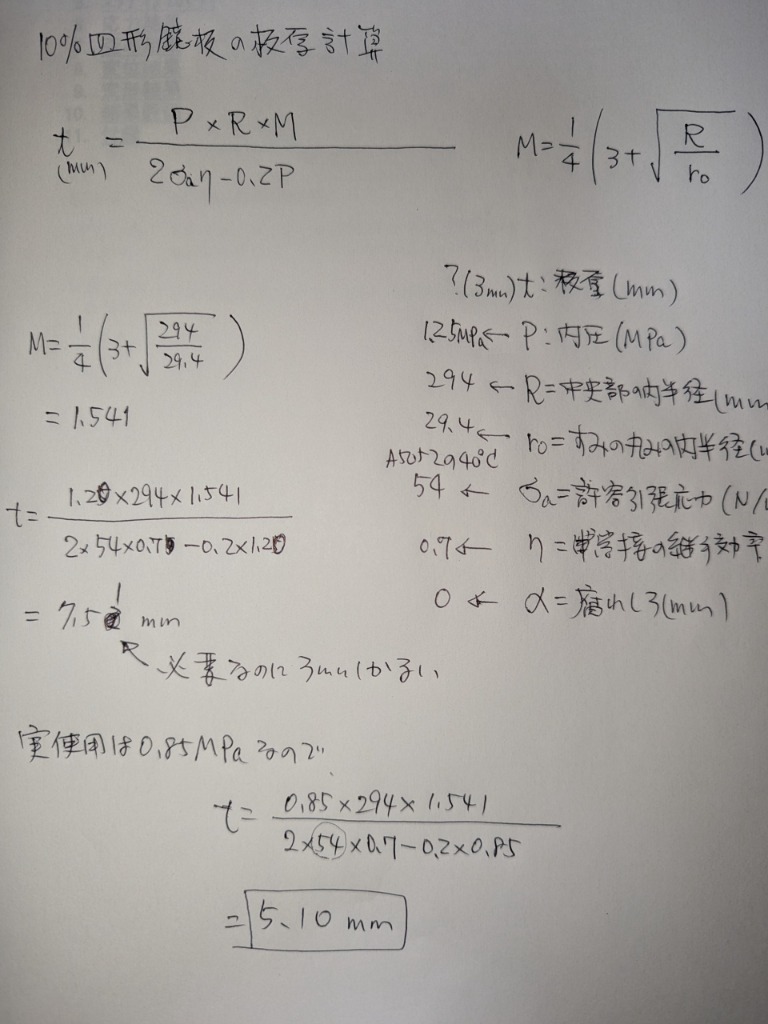 10%皿形鏡板の板厚計算
t(mm) = P×R×M / 2σaη-0.2P
M=1/4(3+√R/ro)
?(3mm)t:板厚(mm)
1.25MPa← P:内圧(MPa)
294 ← R=中央部の内半径(mm
29.4 ← ro=すみの丸みの内半径(
A5052の40℃
54 ← σa=許容引張応力(N/
0.7← η=溶接の継手効率
0 ← α=腐れしろ(mm)
M=1/4(3+√294/29.4)
= 1.541
t= 1.20×294×1.541 / 2×54×0.70-0.2×1.20
= 7.51 mm
必要なのに3mmしかない
実使用は0.85MPaなので
t= 0.85×294×1.541 / 2×54×0.7-0.2×0.85
= 5.10 mm